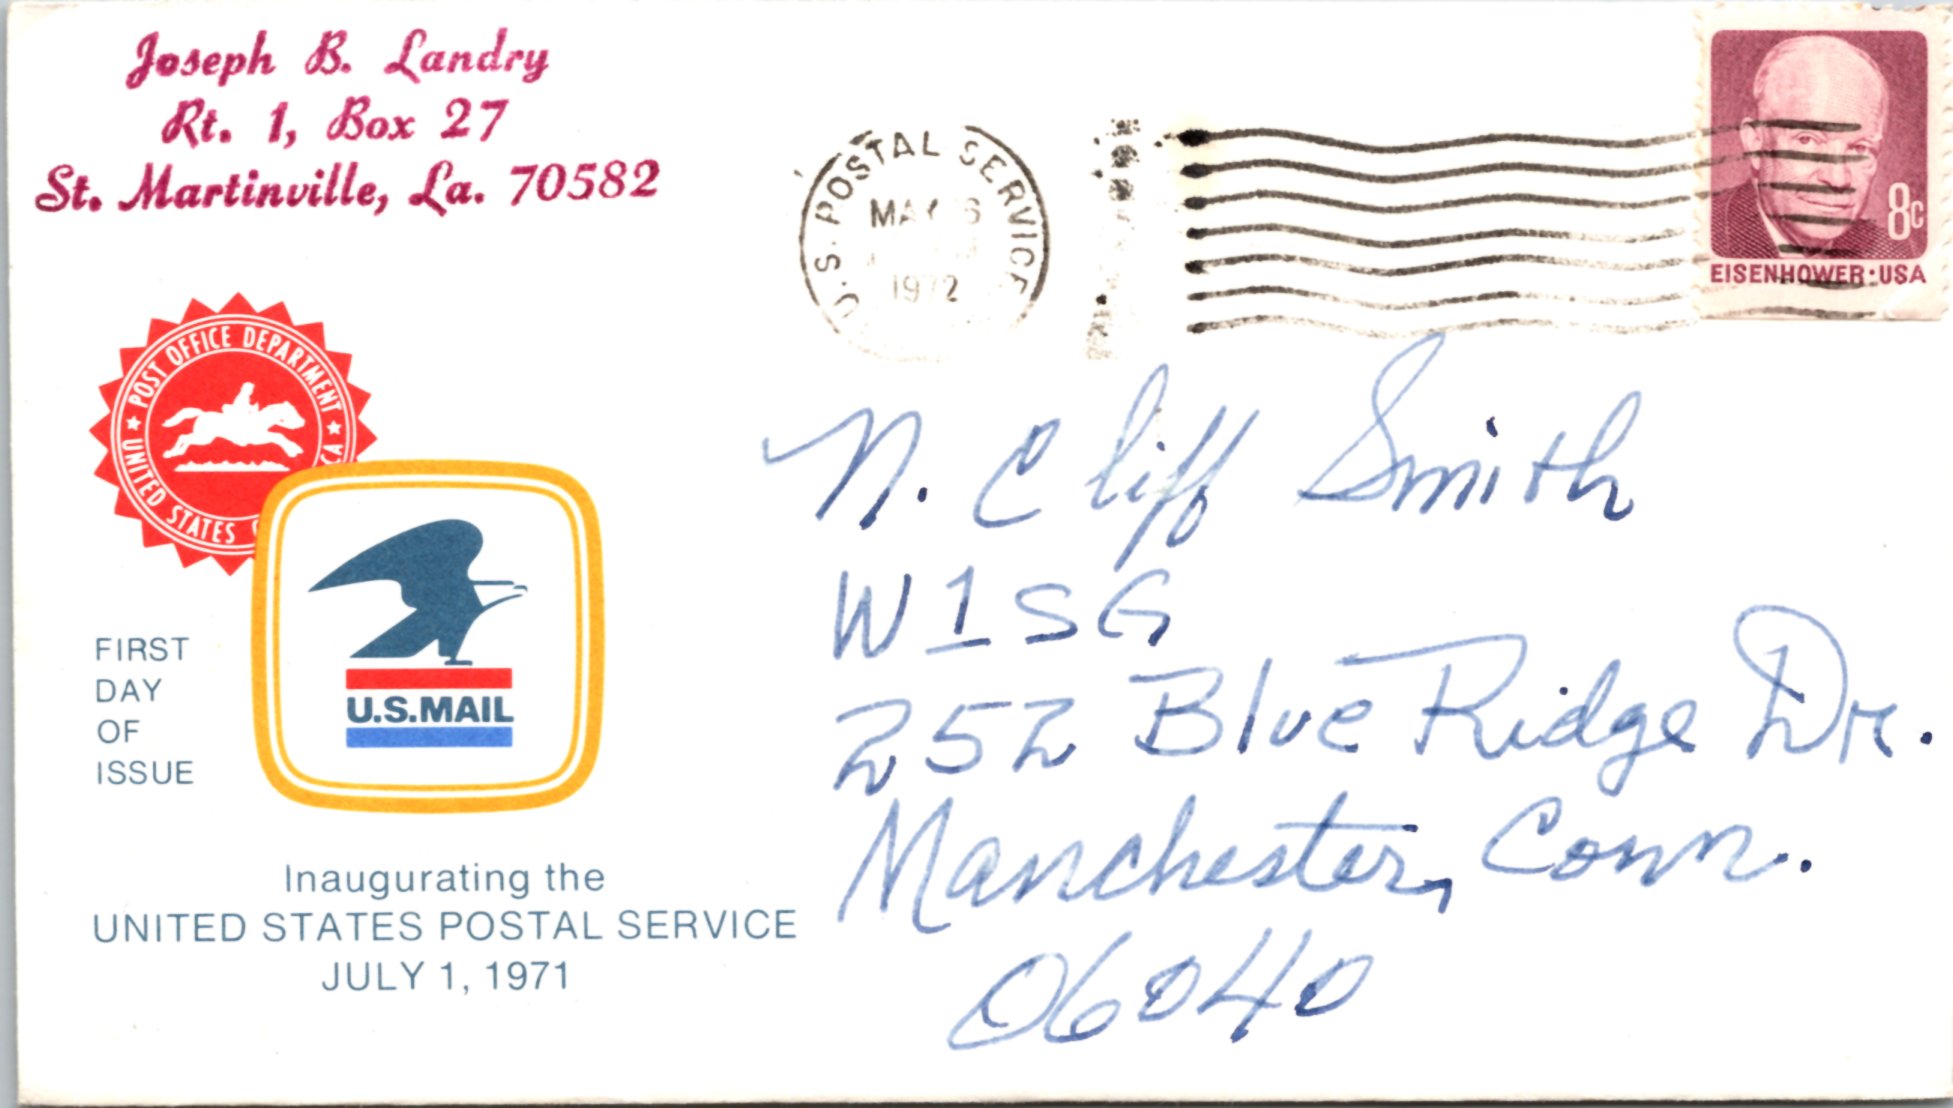 Joseph B. Landry
Rt. 1, Box 27
St. Martinville, La. 70582
U.S. POSTAL SERVICE
MAY 6
1972
8c
EISENHOWER·USA
★ POST OFFICE DEPARTMENT ★
UNITED STATES
U.S.MAIL
FIRST
DAY
OF
ISSUE
Inaugurating the
UNITED STATES POSTAL SERVICE
JULY 1, 1971
N. Cliff Smith
W1SG
252 Blue Ridge Dr.
Manchester, Conn.
06040